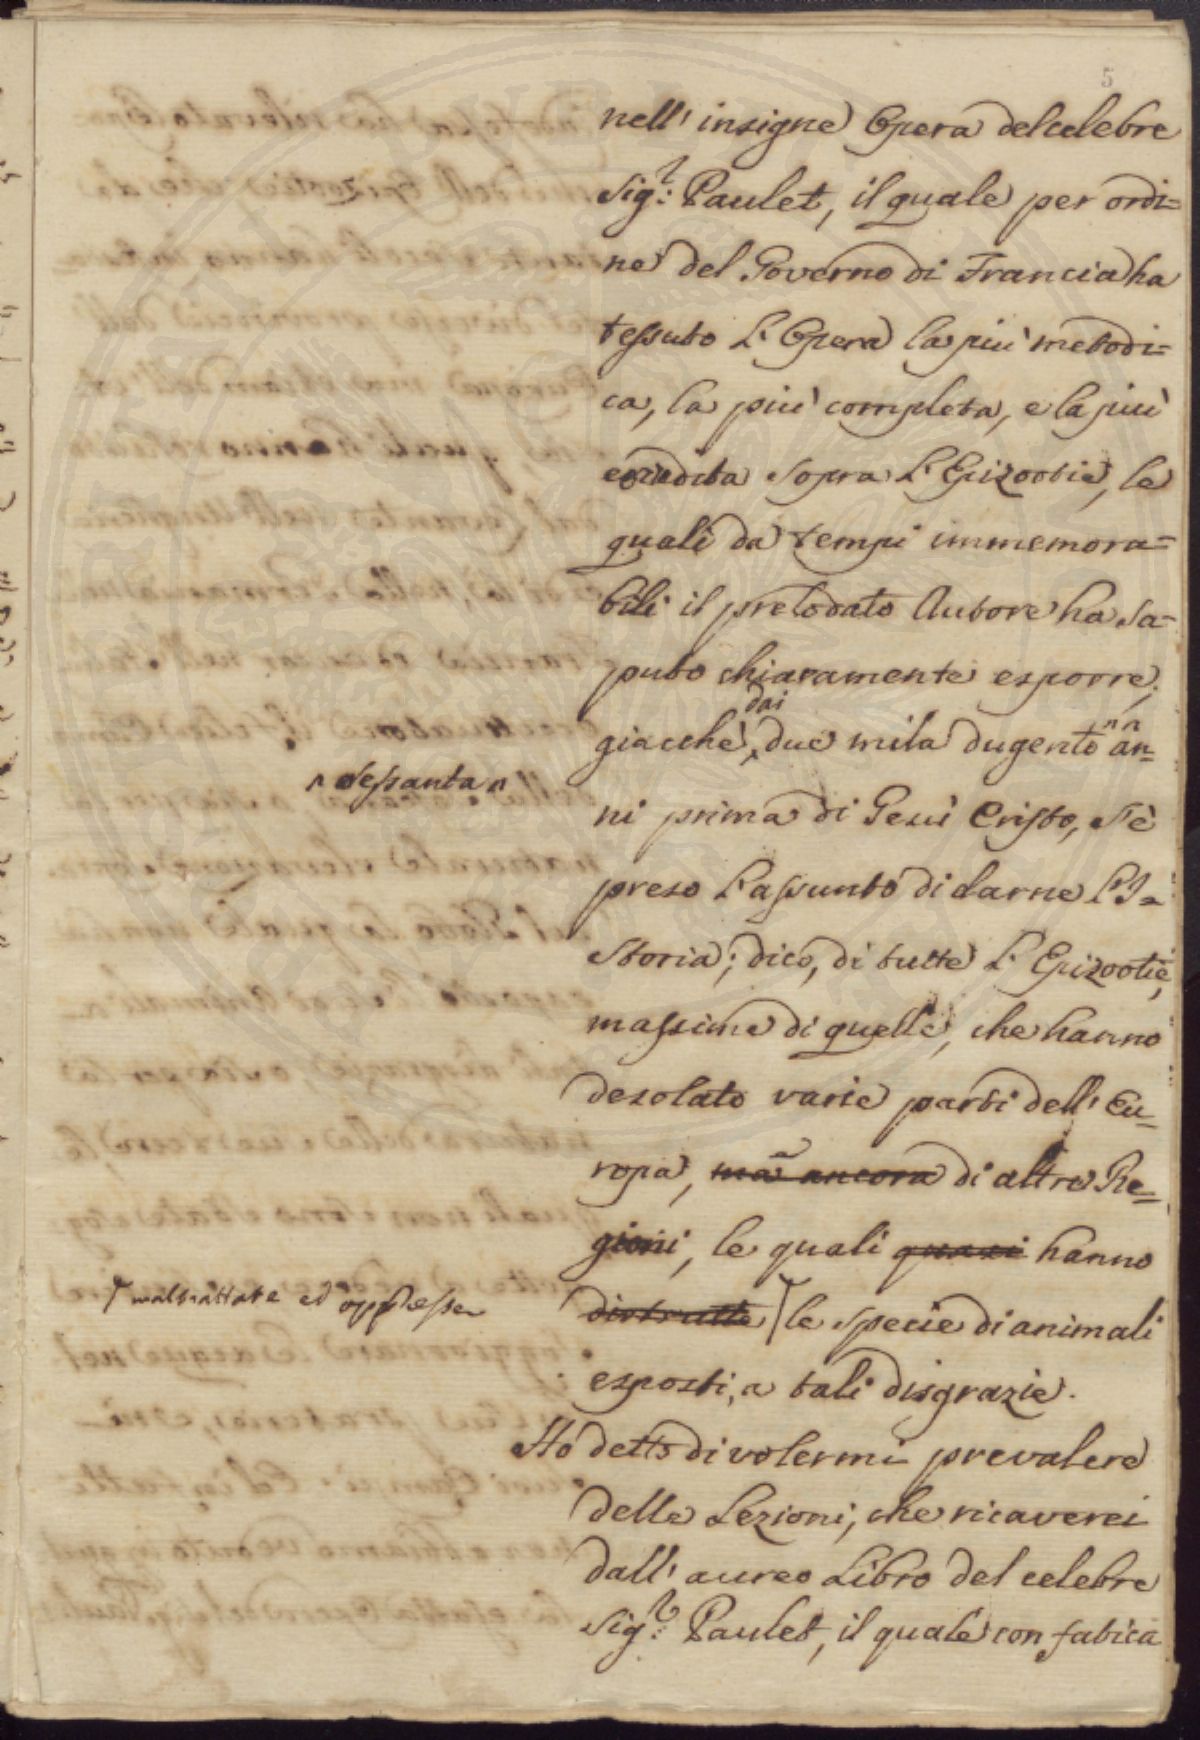 5
nell' insigne Opera del celebre
Sig.r Paulet, il quale per ordi=
ne del Governo di Francia ha
tessuto l'Opera la più metodi=
ca, la più completa, e la più
erudita sopra l'Epizootie, le
quali da tempi immemora=
bili il prelodato Autore ha sa=
puto chiaramente esporre;
dai
giacchè, due mila dugento an-
sessanta
ni prima di Gesù Cristo, s'è
preso l'assunto di darne l'I=
storia; dico, di tutte l'Epizootie,
massime di quelle, che hanno
desolato varie parti dell' Eu-
ropa, ma ancora di altre Re=
gioni, le quali quasi hanno
maltrattate ed oppresse
distrutte le specie di animali
esposti, a tali disgrazie.
Ho detto di volermi prevalere
delle Lezioni, che ricaverei
dall' aureo Libro del celebre
Sig.r Paulet, il quale con fatica